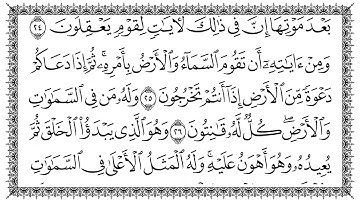 بَعْدَ مَوْتِهَآ إِنَّ فِى ذَٰلِكَ لَءَايَٰتٍ لِّقَوْمٍ يَعْقِلُونَ ٢٤
وَمِنْ ءَايَٰتِهِۦٓ أَن تَقُومَ ٱلسَّمَآءُ وَٱلْأَرْضُ بِأَمْرِهِۦ ۚ ثُمَّ إِذَا دَعَاكُمْ
دَعْوَةً مِّنَ ٱلْأَرْضِ إِذَآ أَنتُمْ تَخْرُجُونَ ٢٥ وَلَهُۥ مَن فِى ٱلسَّمَٰوَٰتِ
وَٱلْأَرْضِ ۖ كُلٌّ لَّهُۥ قَٰنِتُونَ ٢٦ وَهُوَ ٱلَّذِى يَبْدَؤُا۟ ٱلْخَلْقَ ثُمَّ
يُعِيدُهُۥ وَهُوَ أَهْوَنُ عَلَيْهِ ۚ وَلَهُ ٱلْمَثَلُ ٱلْأَعْلَىٰ فِى ٱلسَّمَٰوَٰتِ